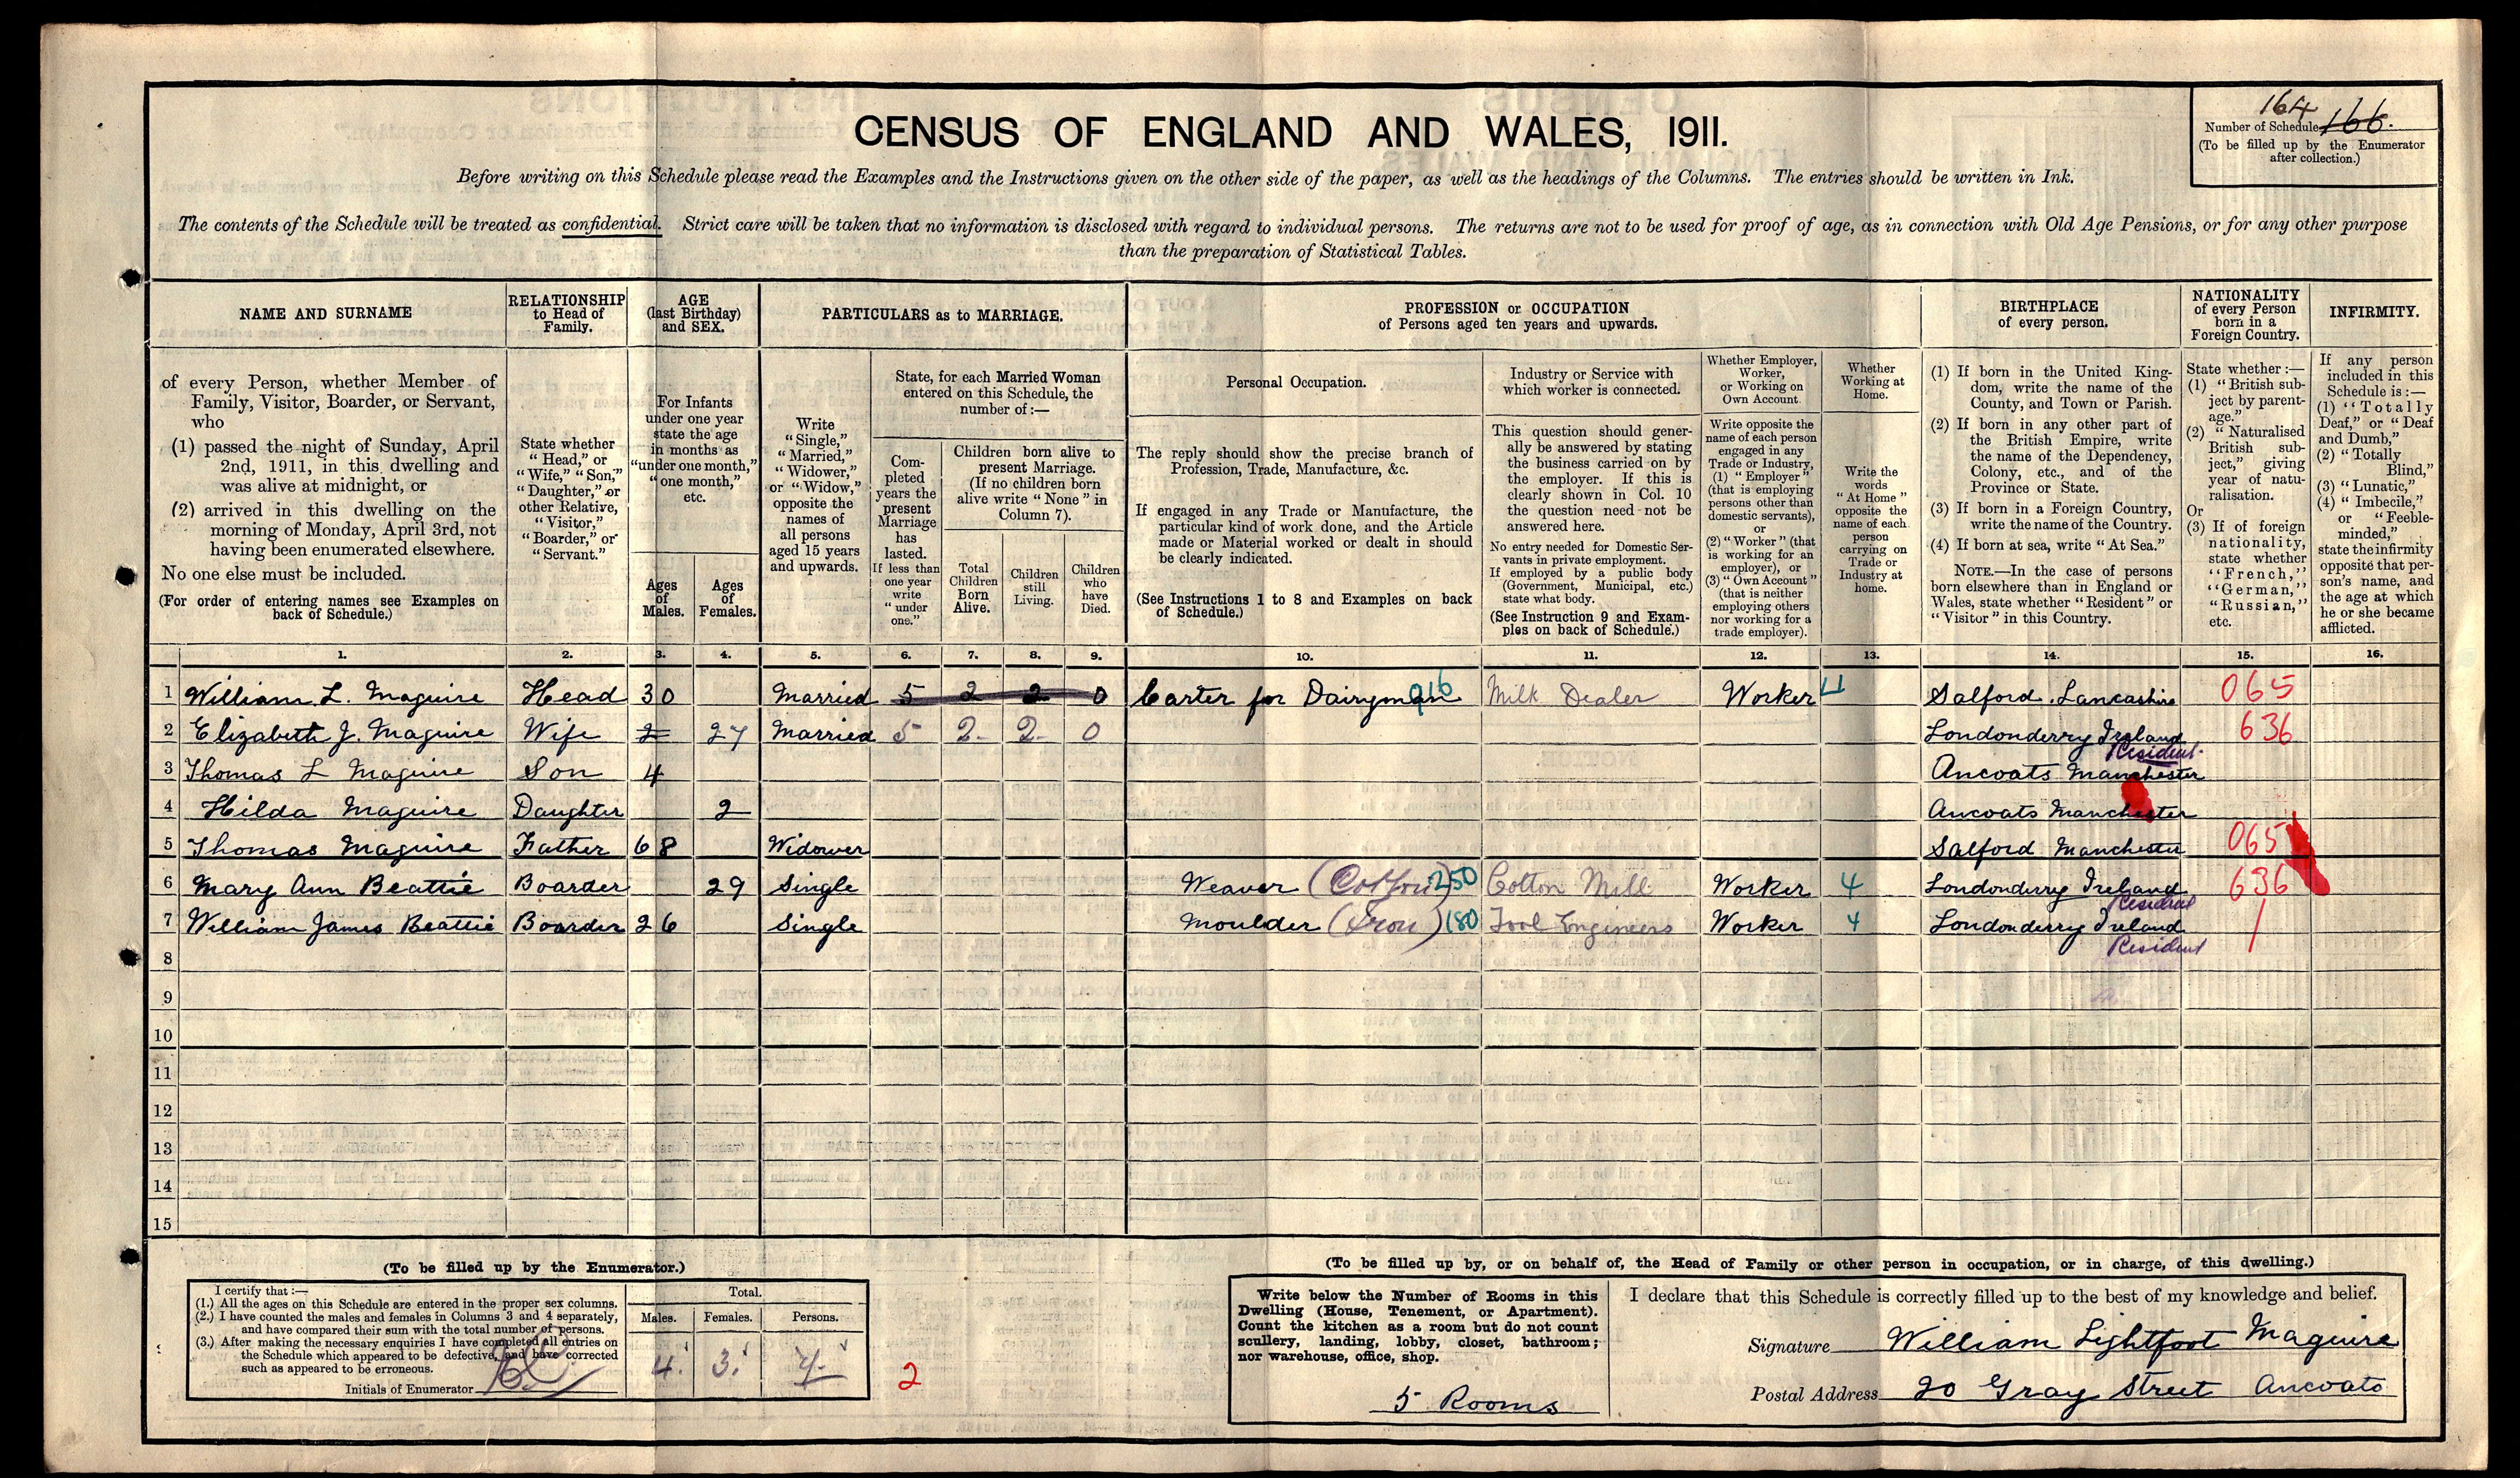 164
Number of Schedule 166.
(To be filled up by the Enumerator
after collection.)
CENSUS OF ENGLAND AND WALES, 1911.
Before writing on this Schedule please read the Examples and the Instructions given on the other side of the paper, as well as the headings of the Columns. The entries should be written in Ink.
The contents of the Schedule will be treated as confidential. Strict care will be taken that no information is disclosed with regard to individual persons. The returns are not to be used for proof of age, as in connection with Old Age Pensions, or for any other purpose
than the preparation of Statistical Tables.
NAME AND SURNAME
of every Person, whether Member of
Family, Visitor, Boarder, or Servant,
who
(1) passed the night of Sunday, April
2nd, 1911, in this dwelling and
was alive at midnight, or
(2) arrived in this dwelling on the
morning of Monday, April 3rd, not
having been enumerated elsewhere.
No one else must be included.
(For order of entering names see Examples on
back of Schedule.)
RELATIONSHIP
to Head of
Family.
State whether
"Head," or
"Wife," "Son,"
"Daughter," or
other Relative,
"Visitor,"
"Boarder," or
"Servant."
AGE
(last Birthday)
and SEX.
For Infants
under one year
state the age
in months as
"under one month,"
"one month,"
etc.
Ages
of
Males.
Ages
of
Females.
PARTICULARS as to MARRIAGE.
Write
"Single,"
"Married,"
"Widower,"
or "Widow,"
opposite the
names of
all persons
aged 15 years
and upwards.
State, for each Married Woman
entered on this Schedule, the
number of:—
Com-
pleted
years the
present
Marriage
has
lasted.
If less than
one year
write
"under
one."
Children born alive to
present Marriage.
(If no children born
alive write "None" in
Column 7).
Total
Children
Born
Alive.
Children
still
Living.
Children
who
have
Died.
PROFESSION or OCCUPATION
of Persons aged ten years and upwards.
Personal Occupation.
The reply should show the precise branch of
Profession, Trade, Manufacture, &c.
If engaged in any Trade or Manufacture, the
particular kind of work done, and the Article
made or Material worked or dealt in should
be clearly indicated.
(See Instructions 1 to 8 and Examples on back
of Schedule.)
Industry or Service with
which worker is connected.
This question should gener-
ally be answered by stating
the business carried on by
the employer. If this is
clearly shown in Col. 10
the question need not be
answered here.
No entry needed for Domestic Ser-
vants in private employment.
If employed by a public body
(Government, Municipal, etc.)
state what body.
(See Instruction 9 and Exam-
ples on back of Schedule.)
Whether Employer,
Worker,
or Working on
Own Account.
Write opposite the
name of each person
engaged in any
Trade or Industry,
(1) "Employer"
(that is employing
persons other than
domestic servants),
or
(2) "Worker" (that
is working for an
employer), or
(3) "Own Account"
(that is neither
employing others
nor working for a
trade employer).
Whether
Working at
Home.
Write the
words
"At Home"
opposite the
name of each
person
carrying on
Trade or
Industry at
home.
BIRTHPLACE
of every person.
(1) If born in the United King-
dom, write the name of the
County, and Town or Parish.
(2) If born in any other part of
the British Empire, write
the name of the Dependency,
Colony, etc., and of the
Province or State.
(3) If born in a Foreign Country,
write the name of the Country.
(4) If born at sea, write "At Sea."
NOTE.—In the case of persons
born elsewhere than in England or
Wales, state whether "Resident" or
"Visitor" in this Country.
NATIONALITY
of every Person
born in a
Foreign Country.
State whether:—
(1) "British sub-
ject by parent-
age."
(2) "Naturalised
British sub-
ject," giving
year of natu-
ralisation.
Or
(3) If of foreign
nationality,
state whether
"French,"
"German,"
"Russian,"
etc.
INFIRMITY.
If any person
included in this
Schedule is:—
(1) "Totally
Deaf," or "Deaf
and Dumb,"
(2) "Totally
Blind,"
(3) "Lunatic,"
(4) "Imbecile,"
or "Feeble-
minded,"
state the infirmity
opposite that per-
son's name, and
the age at which
he or she became
afflicted.
1. 2. 3. 4. 5. 6. 7. 8. 9. 10. 11. 12. 13. 14. 15. 16.
1 William L. Maguire Head 30 Married 5 2 2 0 Carter for Dairyman 916 Milk Dealer Worker 4 Salford Lancashire 065
2 Elizabeth J. Maguire Wife 2 27 Married 5 2 2 0 Londonderry Ireland 636
Resident
3 Thomas L Maguire Son 4 Ancoats Manchester
4 Hilda Maguire Daughter 2 Ancoats Manchester
5 Thomas Maguire Father 68 Widower Salford Manchester 065
6 Mary Ann Beattie Boarder 29 Single Weaver (Cotton) 250 Cotton Mill Worker 4 Londonderry Ireland 636
Resident
7 William James Beattie Boarder 26 Single Moulder (Iron) 180 Tool Engineers Worker 4 Londonderry Ireland
8 Resident
9
10
11
12
13
14
15
(To be filled up by the Enumerator.)
I certify that:—
(1.) All the ages on this Schedule are entered in the proper sex columns.
(2.) I have counted the males and females in Columns 3 and 4 separately,
and have compared their sum with the total number of persons.
(3.) After making the necessary enquiries I have completed all entries on
the Schedule which appeared to be defective, and have corrected
such as appeared to be erroneous.
Initials of Enumerator
Total.
Males. Females. Persons.
4 3 7
2
(To be filled up by, or on behalf of, the Head of Family or other person in occupation, or in charge, of this dwelling.)
Write below the Number of Rooms in this
Dwelling (House, Tenement, or Apartment).
Count the kitchen as a room but do not count
scullery, landing, lobby, closet, bathroom;
nor warehouse, office, shop.
5 Rooms
I declare that this Schedule is correctly filled up to the best of my knowledge and belief.
Signature William Lightfoot Maguire
Postal Address 20 Gray Street Ancoats